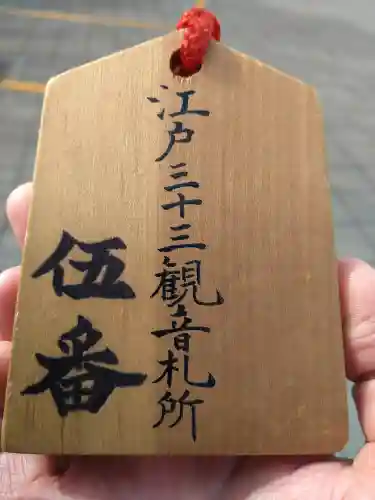 江戸三十三観音札所
伍番